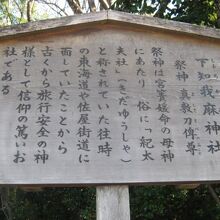 下知我麻神社
祭神 真敷刀俾尊
祭神は宮簀媛命の母神
にあたり 俗に「紀太
夫社」(きだゆうしゃ)
と称されていた往時
の東海道や佐屋街道に
面していたことから
古くから旅行安全の神
様として信仰の篤いお
社である